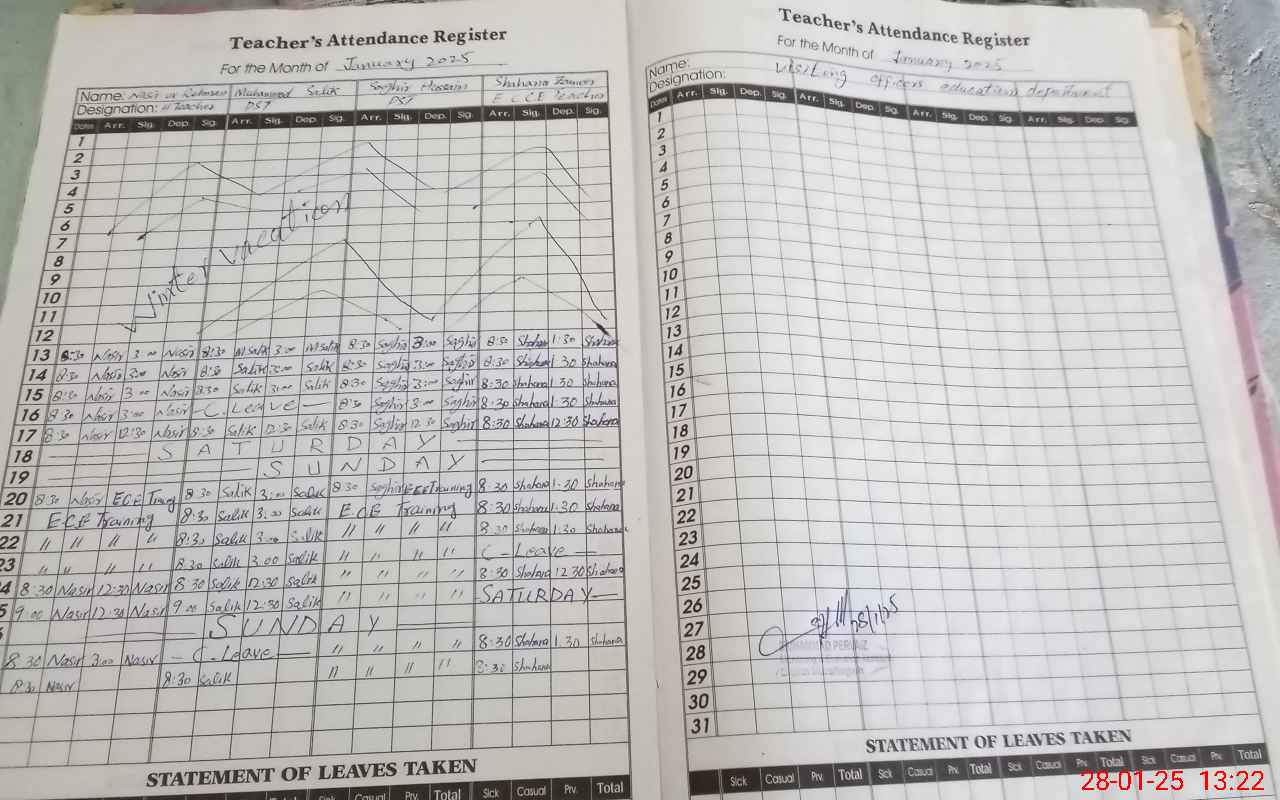 Teacher's Attendance Register
For the Month of January 2025
Name: Nasir ur Rehman Muhammad Salik Saghir Hussain Shahana
Designation: H Teacher DST DST E.C.C.E Teacher
Dates Arr. Sig. Dep. Sig. Arr. Sig. Dep. Sig. Arr. Sig. Dep. Sig. Arr. Sig. Dep. Sig.
1
2
3
4
5
6
7
8
9
10
11
12
Winter vacation
13 8:30 Nasir 3:00 Nasir 8:30 M Salik 3:00 M Salik 8:30 Saghir 3:00 Saghir 8:30 Shahana 1:30 Shahana
14 8:30 Nasir 3:00 Nasir 8:30 Salik 3:00 Salik 8:30 Saghir 3:00 Saghir 8:30 Shahana 1:30 Shahana
15 8:30 Nasir 3:00 Nasir 8:30 Salik 3:00 Salik 8:30 Saghir 3:00 Saghir 8:30 Shahana 1:30 Shahana
16 8:30 Nasir 3:00 Nasir C. Leave 8:30 Saghir 3:00 Saghir 8:30 Shahana 1:30 Shahana
17 8:30 Nasir 12:30 Nasir 8:30 Salik 12:30 Salik 8:30 Saghir 12:30 Saghir 8:30 Shahana 12:30 Shahana
18 SATURDAY
19 SUNDAY
20 8:30 Nasir ECE Traing 8:30 Salik 3:00 Salik 8:30 Saghir ECE Training 8:30 Shahana 1:30 Shahana
21 ECE Training 8:30 Salik 3:00 Salik ECE Training 8:30 Shahana 1:30 Shahana
22 " " " " 8:30 Salik 3:00 Salik " " " " 8:30 Shahana 1:30 Shahana
23 " " " " 8:30 Salik 3.00 Salik " " " " C-Leave
4 8:30 Nasir 12:30 Nasir 8:30 Salik 12:30 Salik " " " " 8:30 Shahana 12:30 Shahana
5 9:00 Nasir 12:30 Nasir 9:00 Salik 12:30 Salik " " " " SATURDAY
SUNDAY
8:30 Nasir 3:00 Nasir C-Leave " " " " 8:30 Shahana 1.30 Shahana
8:30 Nasir 8:30 Salik " " " 8:30 Shahana
STATEMENT OF LEAVES TAKEN
Total Sick Casual Prv. Total Sick Casual Prv. Total
Teacher's Attendance Register
For the Month of January 2025
Name: visiting officers education department
Designation:
Dates Arr. Sig. Dep. Sig. Arr. Sig. Dep. Sig. Arr. Sig. Dep. Sig. Arr. Sig. Dep. Sig.
1
2
3
4
5
6
7
8
9
10
11
12
13
14
15
16
17
18
19
20
21
22
23
24
25
26
27 28/1/25
28
29
30
31
STATEMENT OF LEAVES TAKEN
Sick Casual Prv. Total Sick Casual Prv. Total Sick Casual Prv. Total Sick Casual Prv. Total
28-01-25 13:22